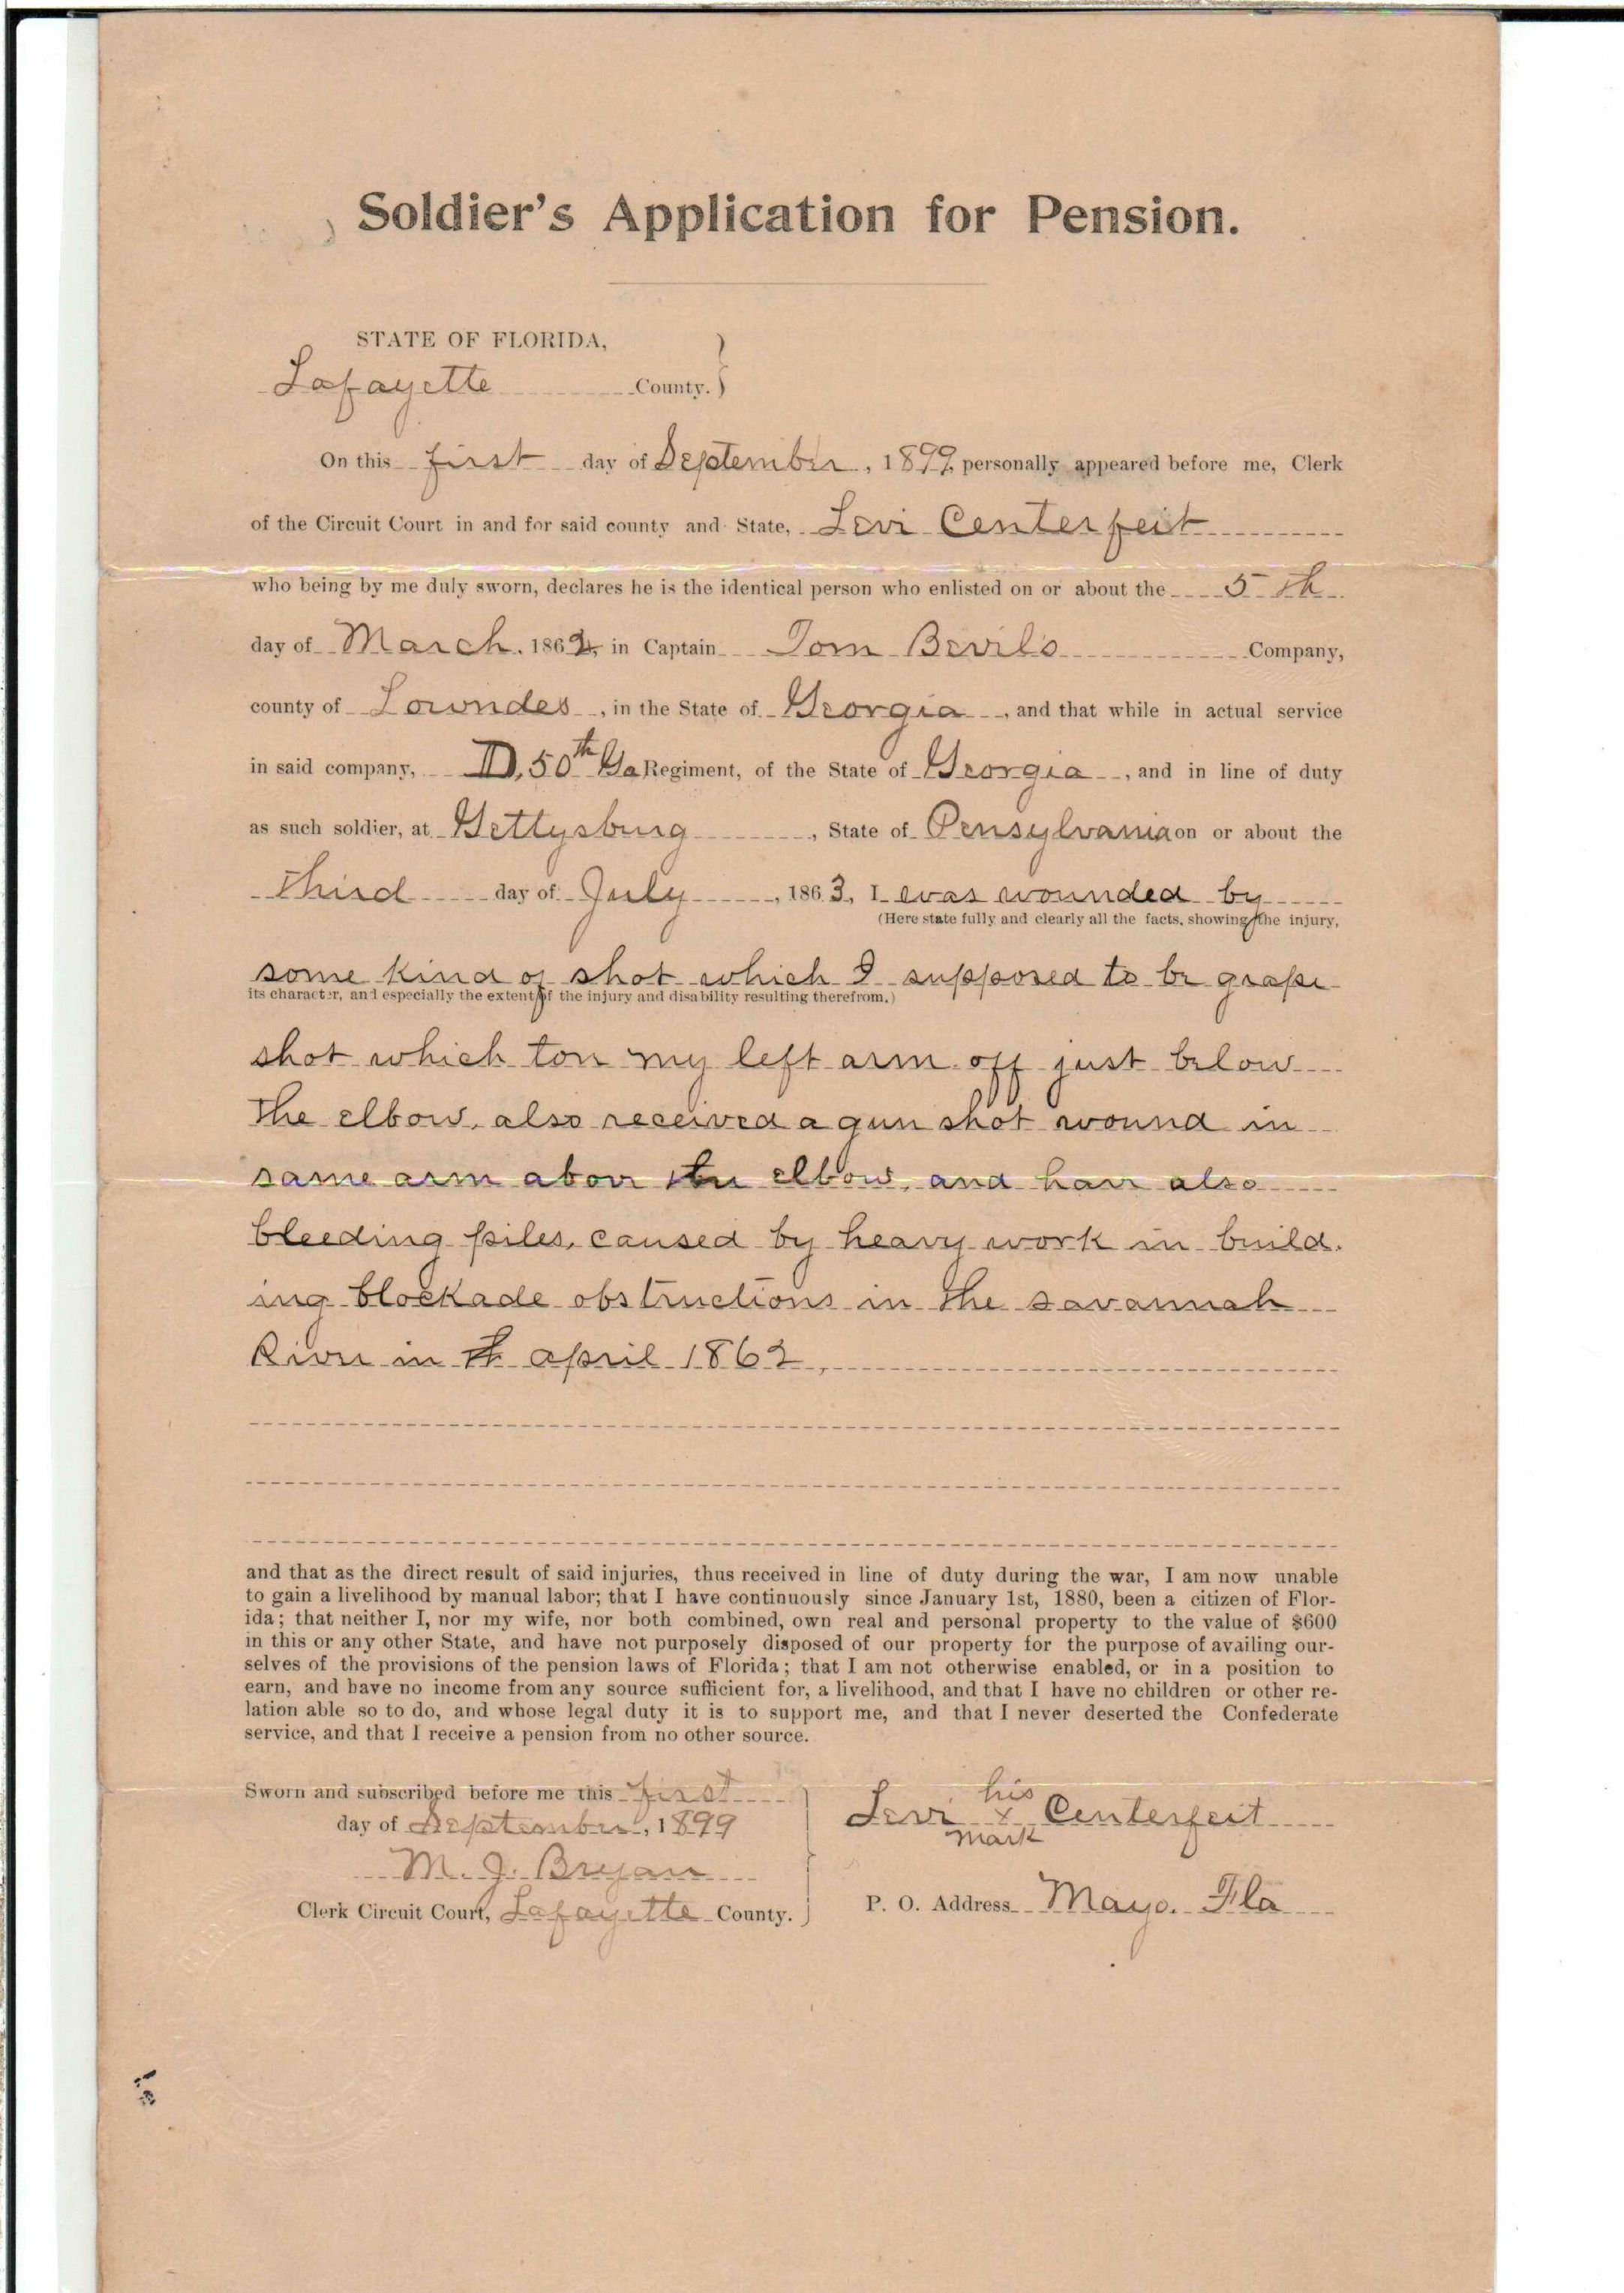 Soldier's Application for Pension.
STATE OF FLORIDA,
Lafayette County.
On this first day of September, 1899, personally appeared before me, Clerk
of the Circuit Court in and for said county and State, Levi Centerfeit
who being by me duly sworn, declares he is the identical person who enlisted on or about the 5th
day of March, 1862, in Captain Tom Bevil's Company,
county of Lowndes, in the State of Georgia, and that while in actual service
in said company, D, 50th Ga Regiment, of the State of Georgia, and in line of duty
as such soldier, at Gettysburg, State of Pensylvania on or about the
Third day of July, 1863, I was wounded by
(Here state fully and clearly all the facts, showing the injury,
some kind of shot which I supposed to be grape
its character, and especially the extent of the injury and disability resulting therefrom.)
shot which tore my left arm off just below
the elbow, also received a gun shot wound in
same arm above the elbow, and have also
bleeding piles, caused by heavy work in build-
ing blockade obstructions in the savannah
River in april 1862,
and that as the direct result of said injuries, thus received in line of duty during the war, I am now unable
to gain a livelihood by manual labor; that I have continuously since January 1st, 1880, been a citizen of Flor-
ida; that neither I, nor my wife, nor both combined, own real and personal property to the value of $600
in this or any other State, and have not purposely disposed of our property for the purpose of availing our-
selves of the provisions of the pension laws of Florida; that I am not otherwise enabled, or in a position to
earn, and have no income from any source sufficient for, a livelihood, and that I have no children or other re-
lation able so to do, and whose legal duty it is to support me, and that I never deserted the Confederate
service, and that I receive a pension from no other source.
Sworn and subscribed before me this first
day of September, 1899
M. J. Bryan
Clerk Circuit Court, Lafayette County.
his
Levi x Centerfeit
mark
P. O. Address Mayo. Fla